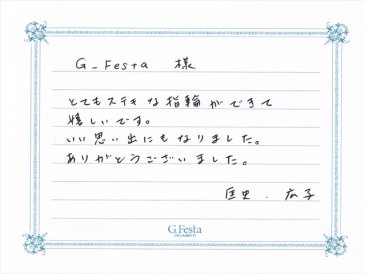 G_Festa 様
とてもステキな指輪ができて
嬉しいです。
いい思い出にもなりました。
ありがとうございました。
匡史 . 広子
G.Festa